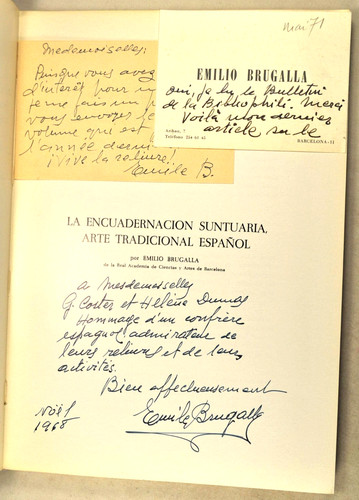 Mesdemoiselles:
Puisque vous avez
d'intérêt pour
vous envoyer
volume que est
l'année
¡Vive la reliure!
Emile B.
mai 71
EMILIO BRUGALLA
oui, j'ai lu le Bulletin
de la Bibliophilie. Merci
Voilà mon dernier
article sur le
Aribau, 7
Teléfono 254 65 45
BARCELONA-11
LA ENCUADERNACION SUNTUARIA,
ARTE TRADICIONAL ESPAÑOL
por EMILIO BRUGALLA
de la Real Academia de Ciencias y Artes de Barcelona
a Mesdemoiselles
G. Coster et Hélène Dumas
Hommage d'un confrère
espagnol admirateur de
leurs reliures et de leurs
activités.
Bien affectueusement
Emile Brugalla
Nöel
1968